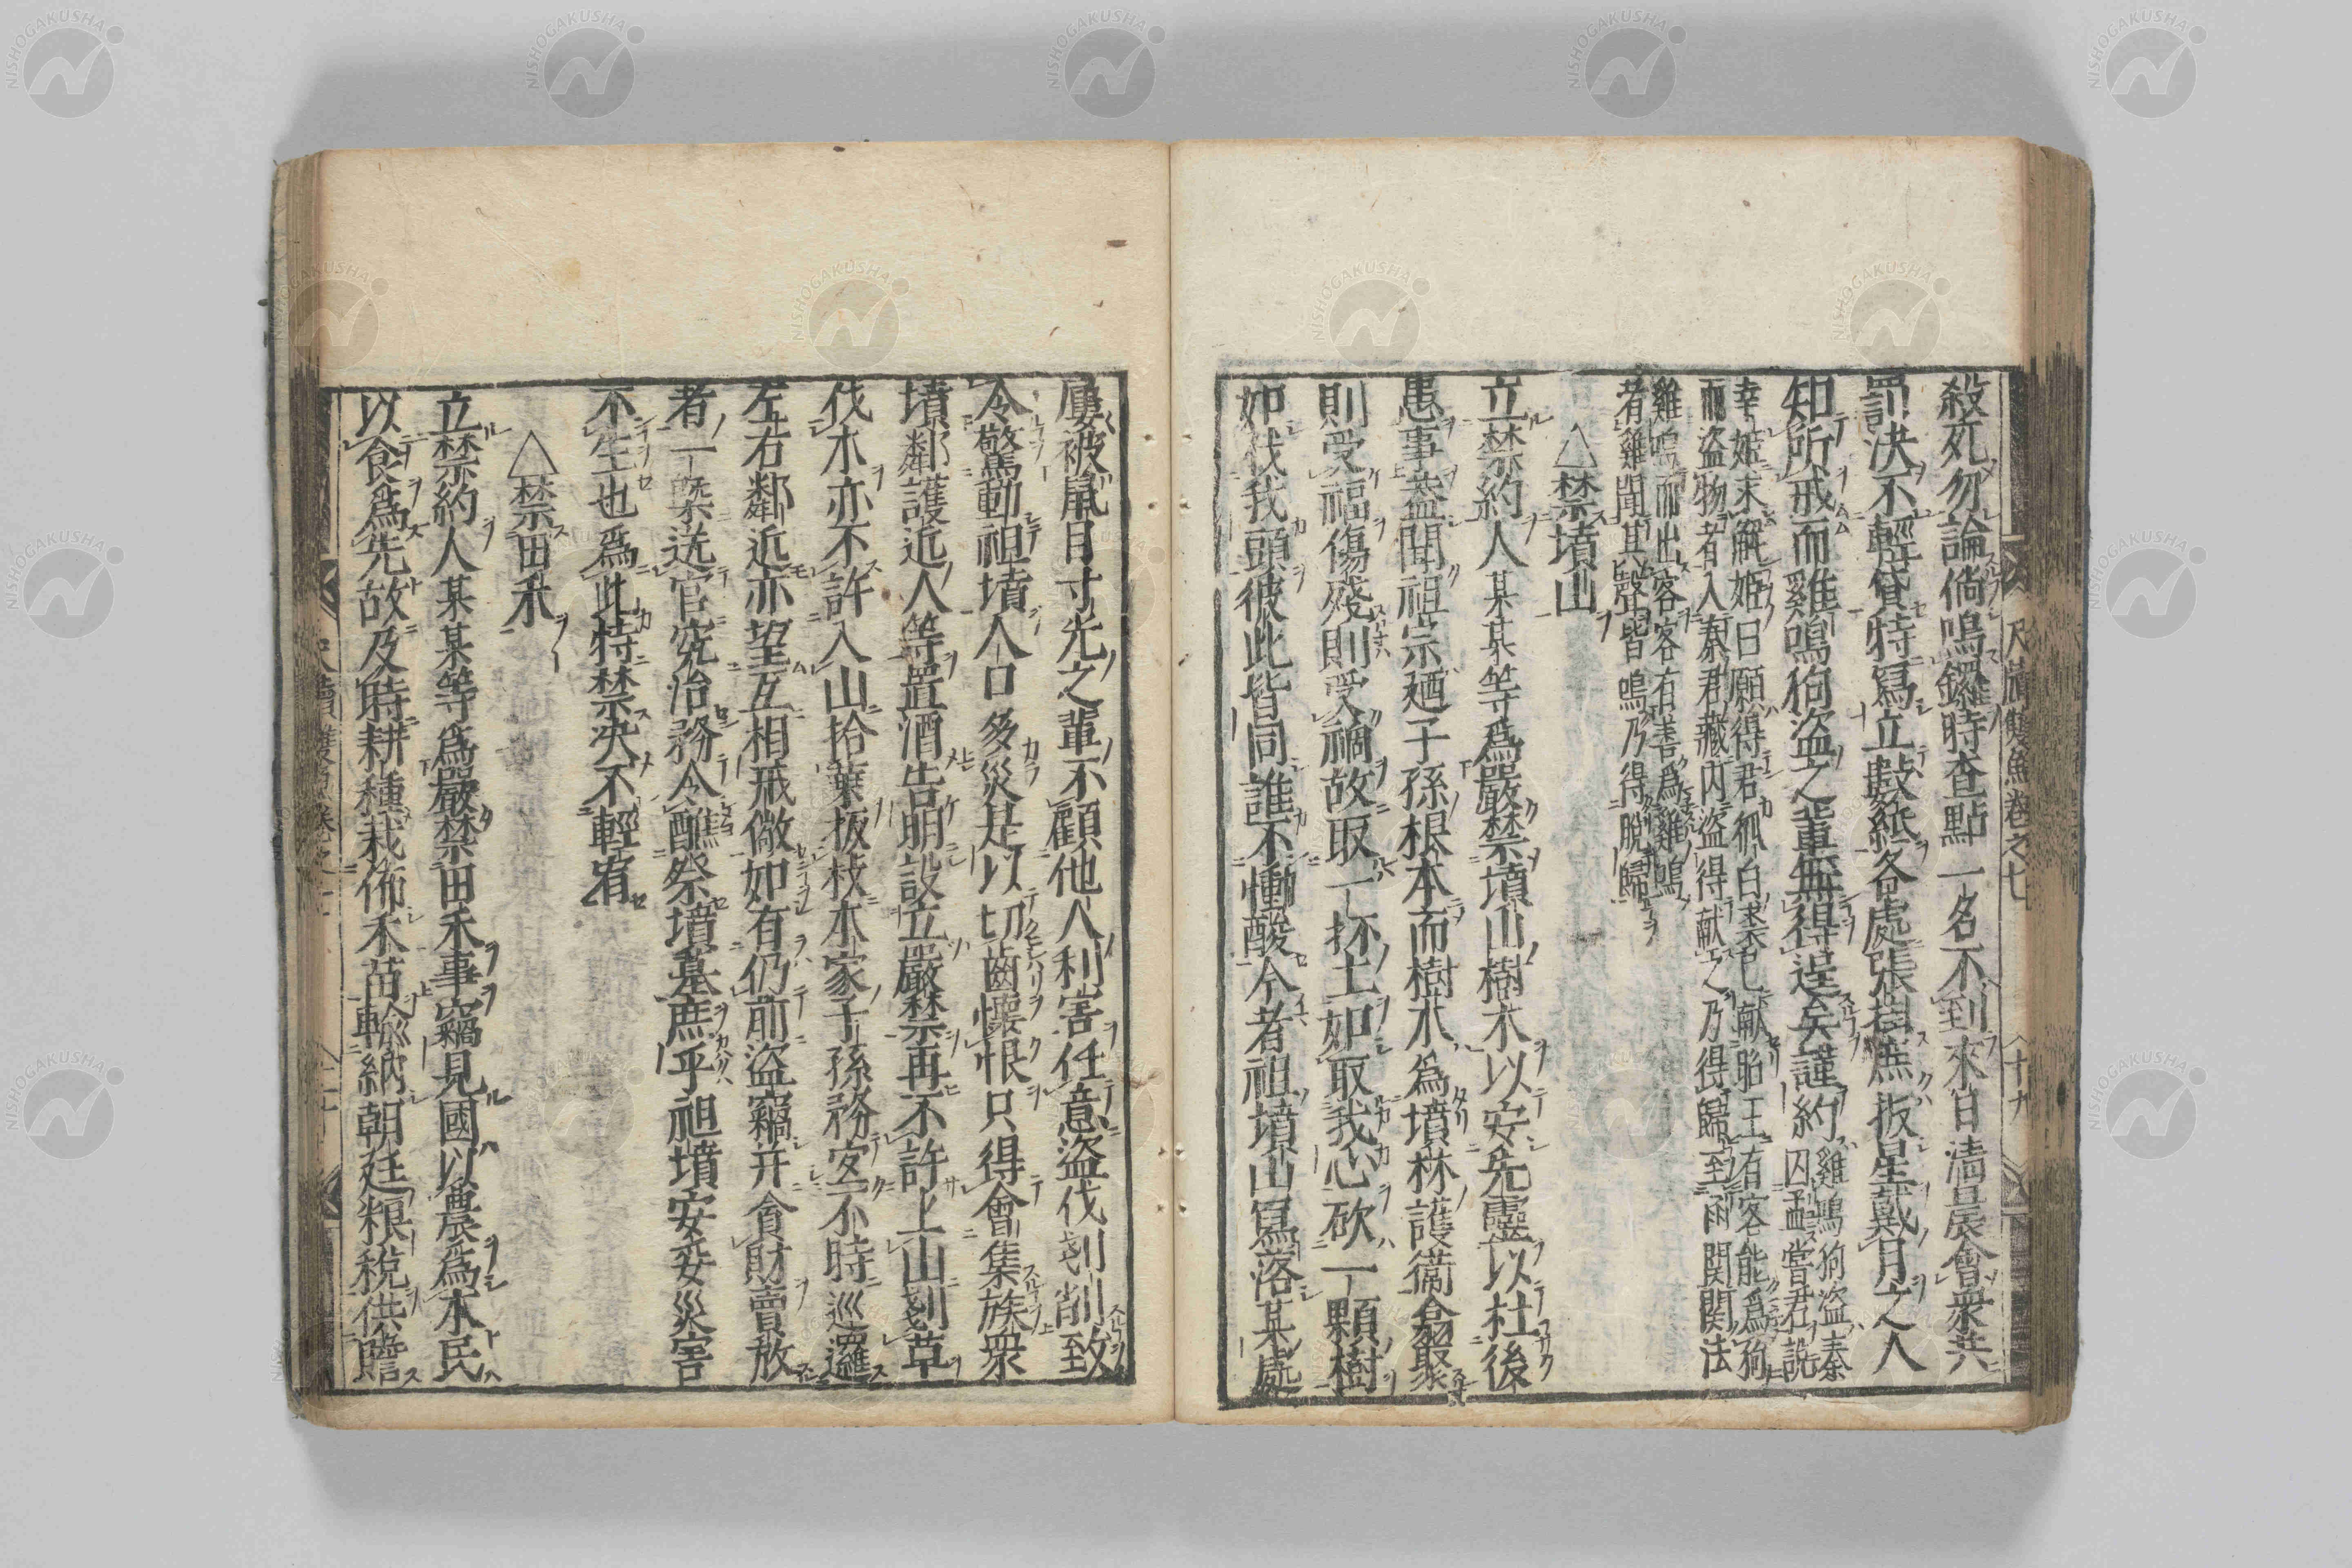 殺死勿論倘鳴鑼時查點一名不到來日淸晨會衆共
罰決不輕貸特爲立數紙各處張掛庶扳星戴月之人
知所戒而雞鳴狗盜之輩無得逞矣謹約
雞鳴狗盜秦
囚孟嘗君說
幸姬求解姬曰願得君狐白裘已献昭王有客能爲狗
而盜物者入秦君藏内盜得献之乃得歸至
関関法
雞鳴而出客客有善爲雞鳴
者雞聞其聲皆鳴乃得脫歸
△禁墳山
立禁約人某某等爲嚴禁墳山樹木以安先靈以杜後
患事葢聞祖宗廼子孫根本而樹木爲墳林護衞翕聚
則受福傷殘則受禍故取一抔土如取我心砍一顆樹
如伐我頭彼此皆同誰不慟酸今者祖墳山寫落某處
屢被鼠目寸光之輩不顧他人利害任意盜伐剗削致
令驚動祖墳人口多災是以切齒懷恨只得會集族衆
墳鄰護近人等置酒告明設立嚴禁再不許上山剗草
伐木亦不許入山拾葉扳枝本家子孫務宐不時巡邏
左右鄰近亦望互相戒儆如有仍前盜竊幷貪財賣放
者一槩送官究治務令醮祭墳墓庶乎祖墳安妥災害
不生也爲此特禁決不輕宥
△禁田禾
立禁約人某某等爲嚴禁田禾事竊見國以農爲本民
以食爲先故及時耕種栽佈禾苗輸納朝廷粮稅供贍
尺牘雙魚卷之七
十九